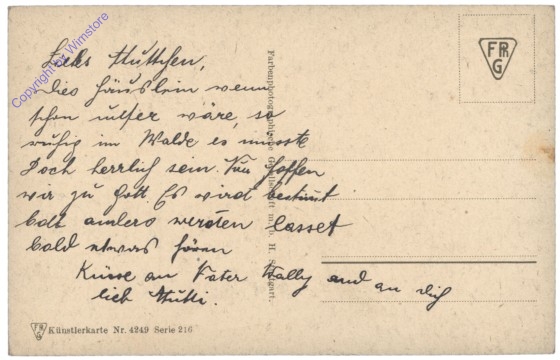 Liebs Muttchen,
dies Häuslein wenn
schon unser wäre, so
ruhig im Walde es müsste
Doch herrlich sein. Nun hoffen
wir zu Gott. Es wird bestimt
bald anders werden lasset
bald etwas hören
Küsse an Vater Wally and an dich
lieb Mutti.
Farbenphotographische Gesellschaft m. b. H. Stuttgart.
FPhG
FPhG Künstlerkarte Nr. 4249 Serie 216
Copyright by Wimstore